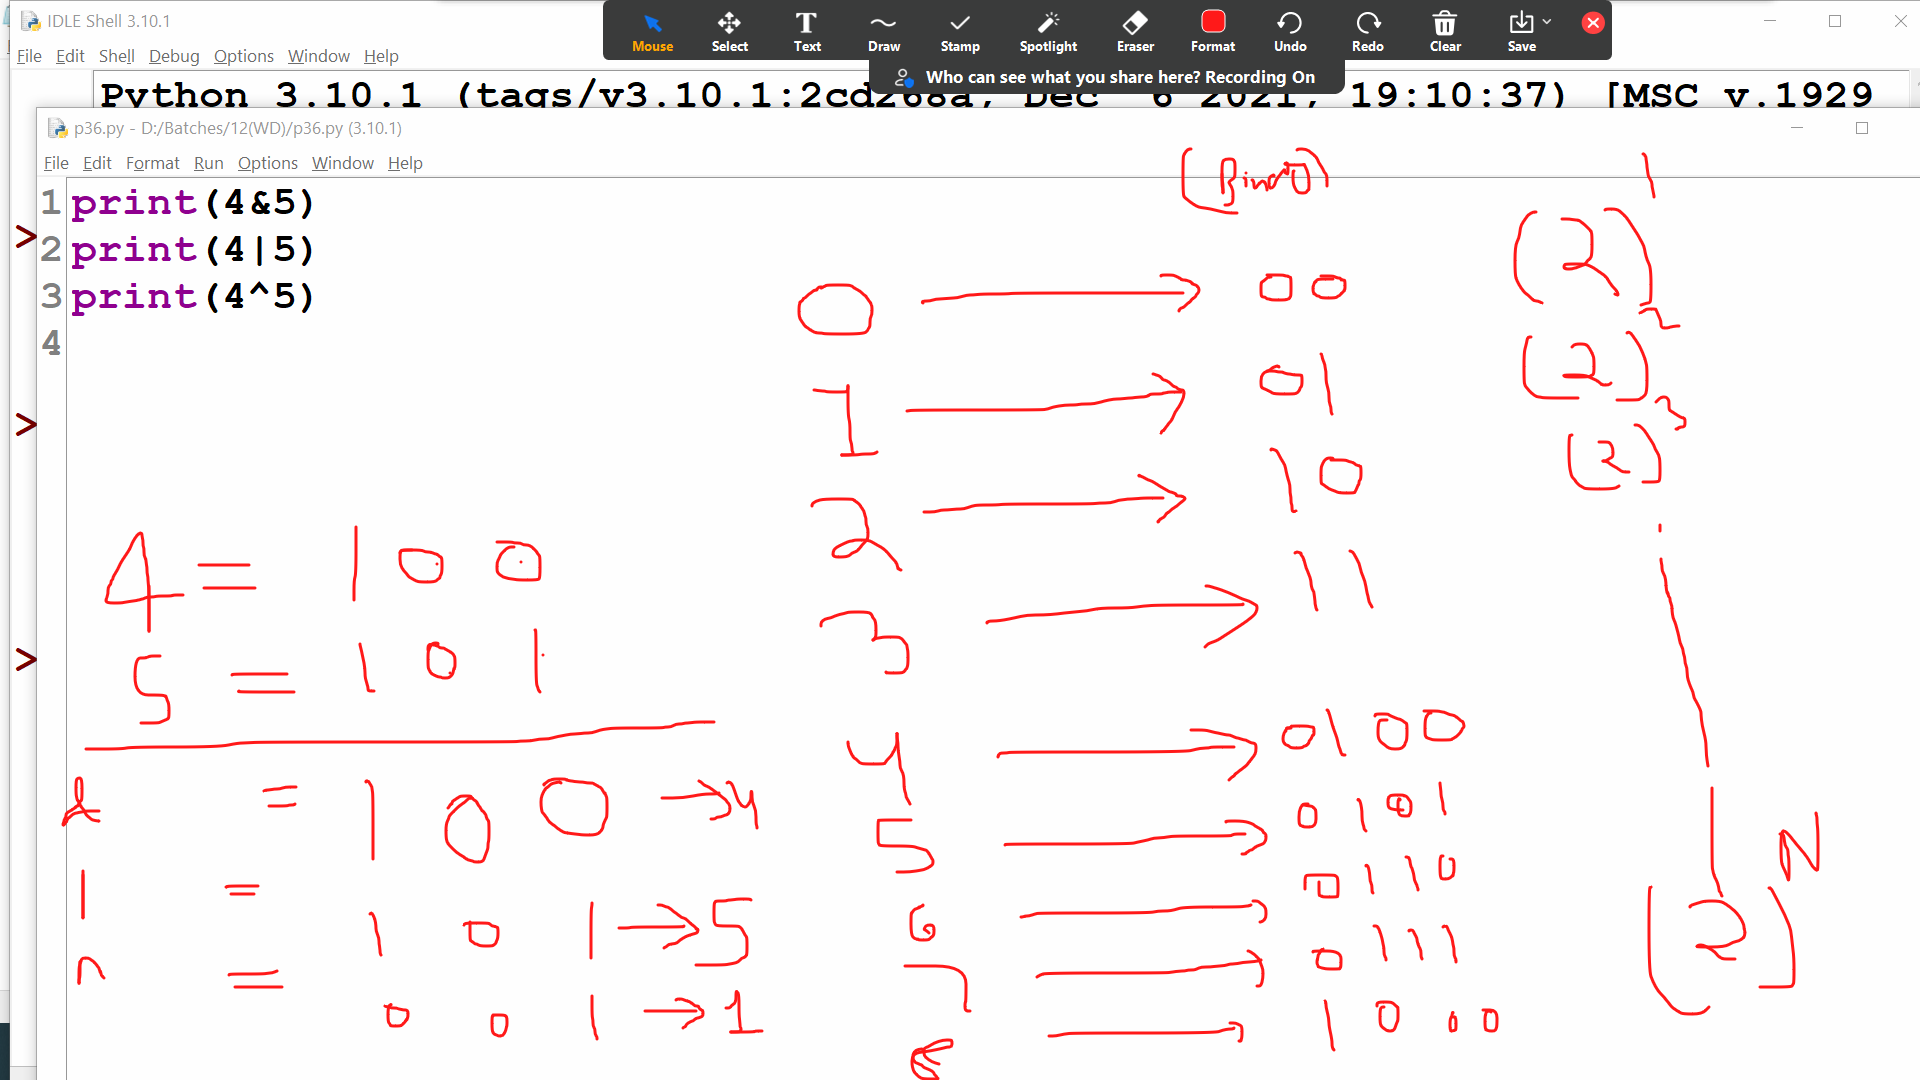 IDLE Shell 3.10.1
File Edit Shell Debug Options Window Help
Mouse Select Text Draw Stamp Spotlight Eraser Format Undo Redo Clear Save
Who can see what you share here? Recording On
Python 3.10.1 (tags/v3.10.1:2cd268a, Dec 6 2021, 19:10:37) [MSC v.1929
p36.py - D:/Batches/12(WD)/p36.py (3.10.1)
File Edit Format Run Options Window Help
1 print(4&5)
2 print(4|5)
3 print(4^5)
4
>
>
>
4 = 1 0 0
5 = 1 0 1
& = 1 0 0 → 4
| = 1 0 1 → 5
^ = 0 0 1 → 1
0 → 00
1 → 01
2 → 10
3 → 11
4 → 0100
5 → 0101
6 → 0110
7 → 0111
8 → 1000
(2)1
(2)2
(2)3
(2)N